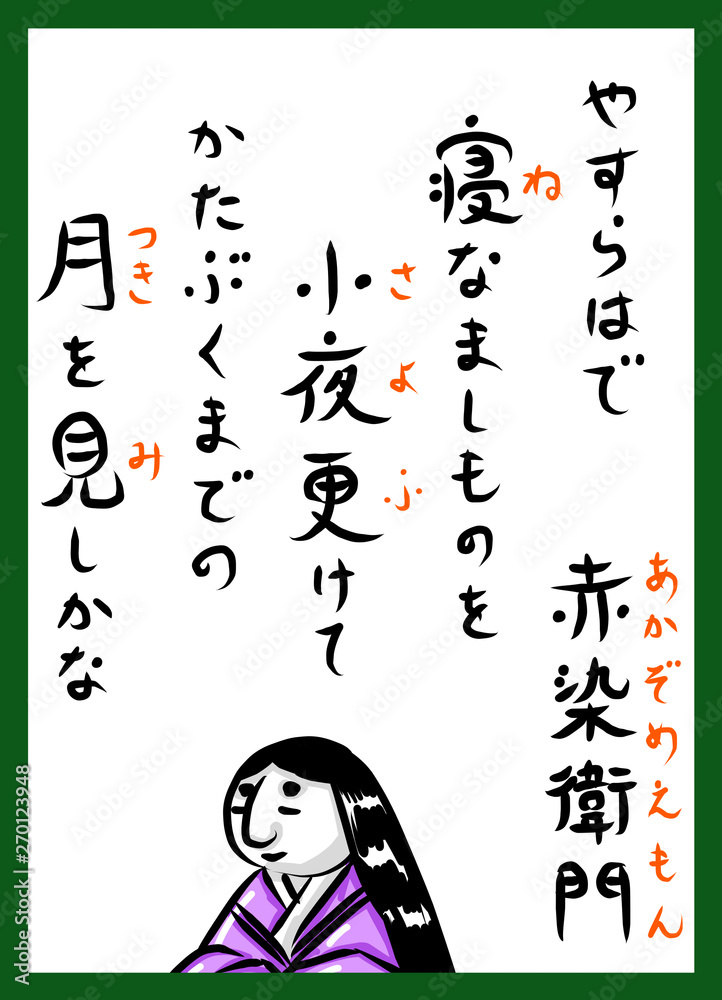 やすらはで
赤染衛門
あかぞめえもん
寝なましものを
ね
小夜更けて
さよふ
かたぶくまでの
月を見しかな
つき
み
Adobe Stock | #270123948